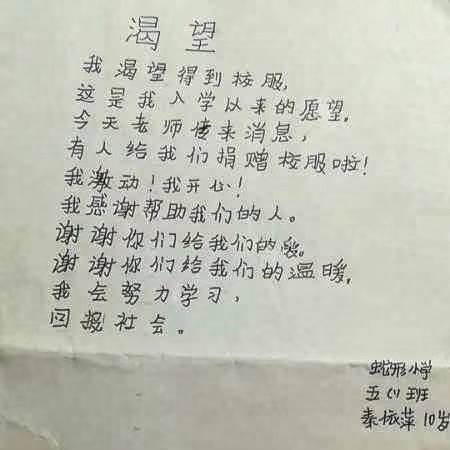 渴望
我渴望得到校服,
这是我入学以来的愿望。
今天老师传来消息，
有人给我们捐赠校服啦！
我激动！我开心！
我感谢帮助我们的人。
谢谢你们给我们的爱。
谢谢你们给我们的温暖。
我会努力学习，
回报社会。
蛇形小学
五(1)班
秦依萍 10岁